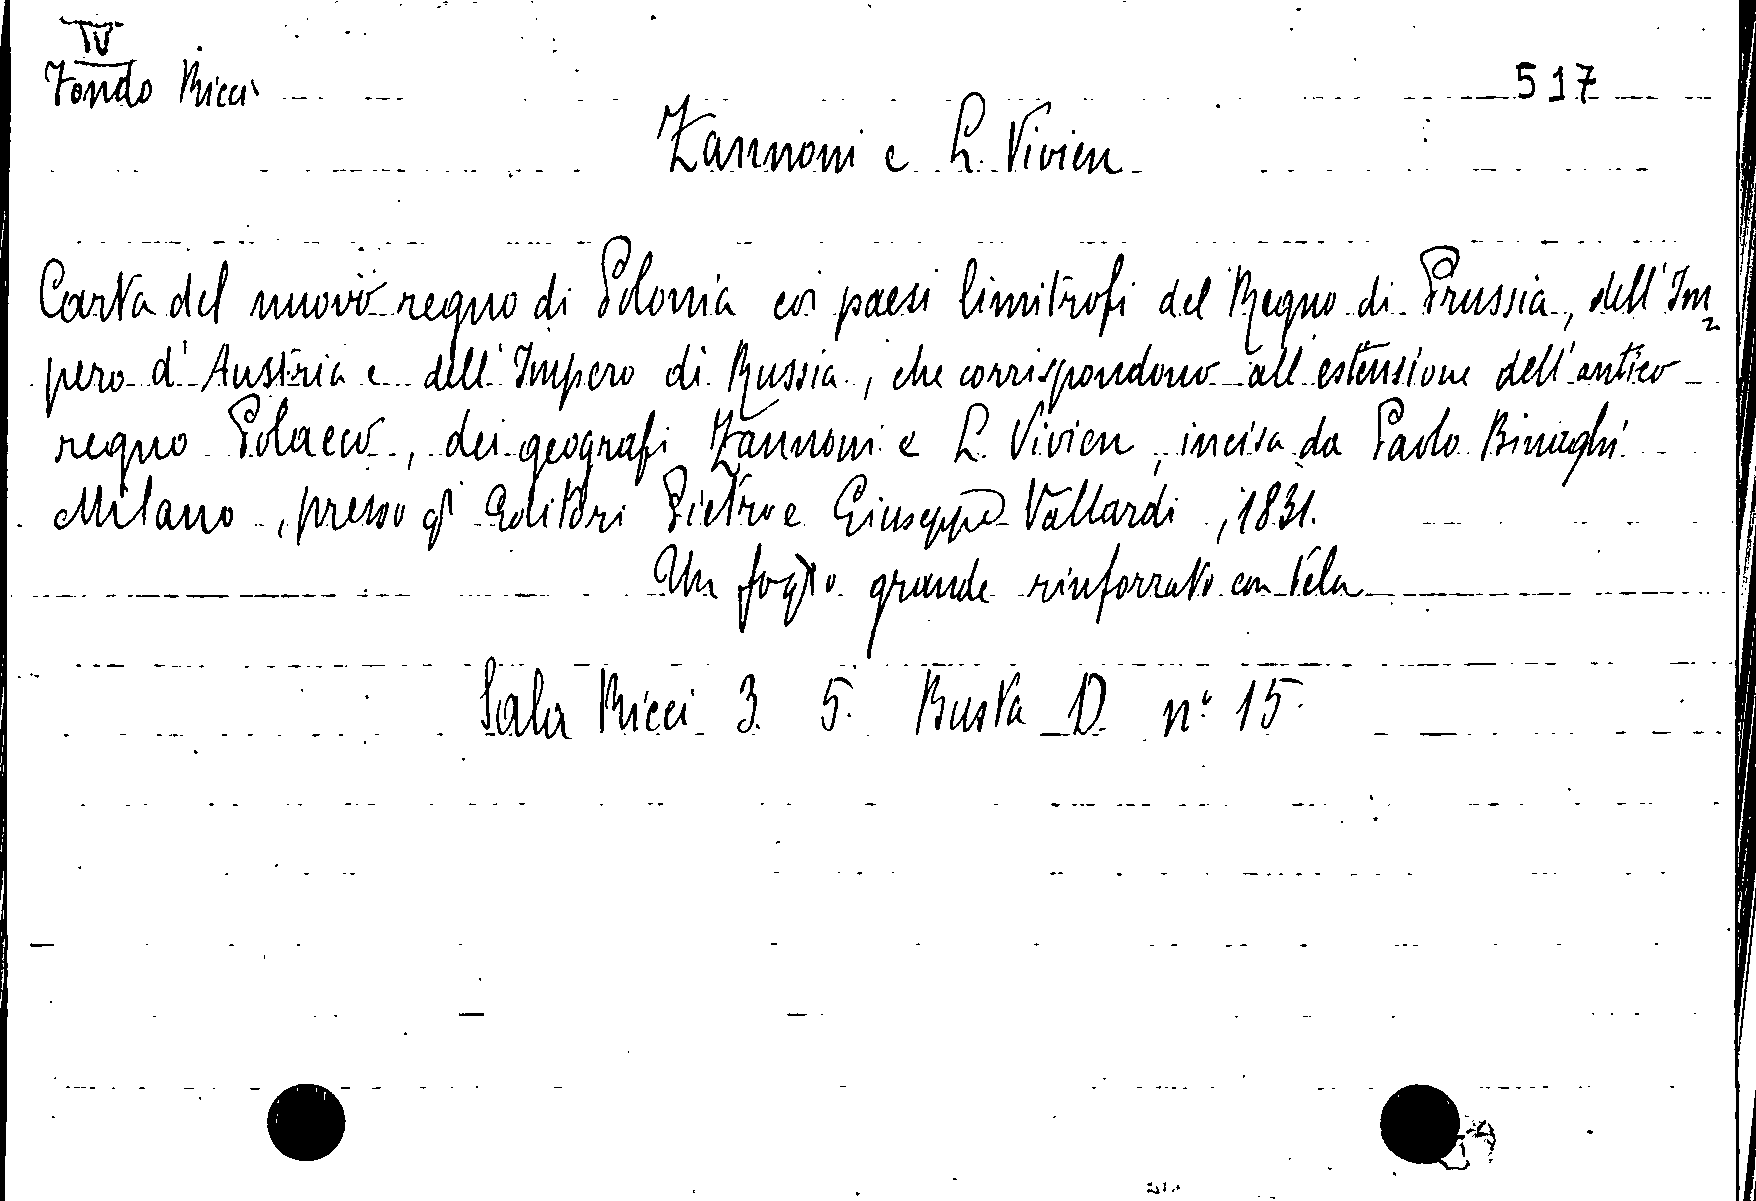 IV
Fondo Ricci
517
Zannoni e L. Vivien
Carta del nuovo regno di Polonia coi paesi limitrofi del Regno di Prussia, dell'Im=
pero d'Austria e dell'Impero di Russia, che corrispondono all'estensione dell'antico
regno Polacco, dei geografi Zannoni e L. Vivien, incisa da Paolo Binaghi
Milano, presso gl' Editori Pietro e Giuseppe Vallardi, 1831.
Un foglio grande rinforzato con tela
Sala Ricci 3. 5. Busta D. n° 15.